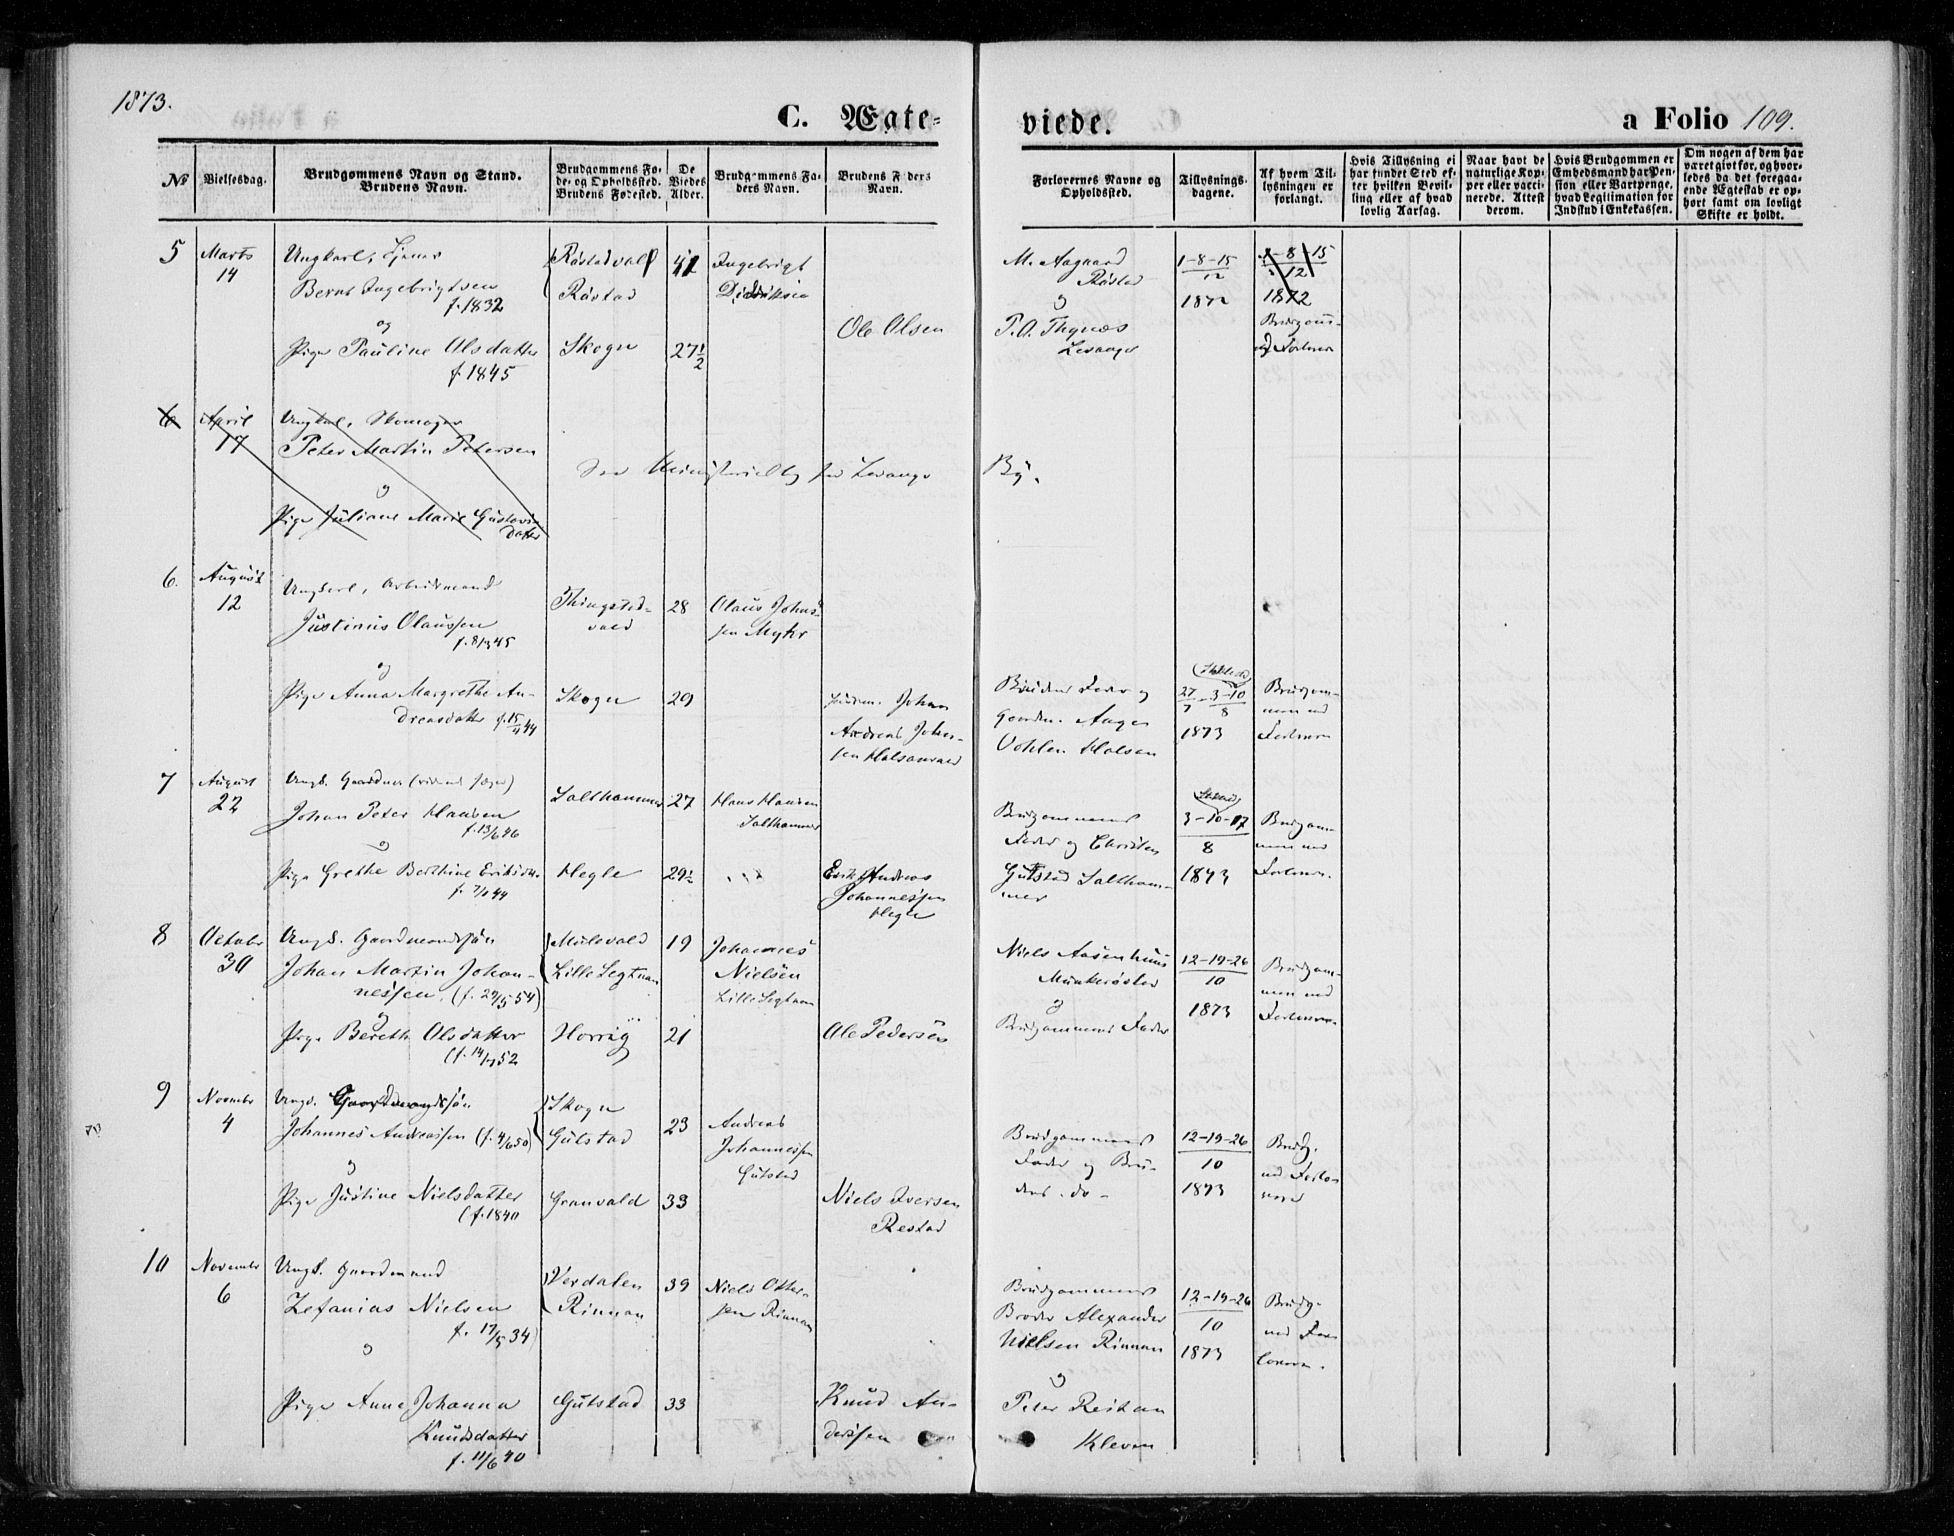 1873.
C. Ægte-
viede.
a Folio 109.
No
Vielsesdag.
Brudgommens Navn og Stand.
Brudens Navn.
Brudgommens Fø-
de- og Opholdssted.
Brudens Fødested.
De
Viedes
Alder.
Brudgommens Fa-
ders Navn.
Brudens Faders
Navn.
Forlovernes Navne og
Opholdssted.
Tillysnings-
dagene.
Af hvem Til-
lysningen er
forlangt.
Hvis Tillysning ei
har fundet Sted ef-
ter hvilken Bevil-
ling eller af hvad
lovlig Aarsag.
Naar havt de
naturlige Kop-
per eller vacci-
nerede. Attest
derom.
Hvis Brudgommen er
Embedsmand har Pen-
sion eller Vartpenge,
hvad Legitimation for
Indskud i Enkekassen.
Om nogen af dem har
været gift før, og hvor-
ledes da det foregaa-
ende Ægteskab er op-
hørt samt om lovligt
Skifte er holdt.
5
Marts
14
Ungkarl, Tjener
Bernt Ingebrigtsen
f. 1832
og
Pige Pauline Olsdatter
f. 1845
Råstad
Skogn
41
27½
Ingebrigt
Ole Olsen
M. Aagaard
Råstad
og
P. O. Thynæs
Levanger
1-8-15
12
1872
1-8-15
12
1872
Brudgom-
og Forlover
6
April
17
Ungkarl, Skomager
Peter Martin Petersen
og
Pige Juliane Marie Gustavs-
datter
See Ministerialbog for Levanger
By.
6.
August
12
Ungkarl, Arbeidsmand
Justinus Olaussen
f. 8/3 45
og
Pige Anna Margrethe An-
dreasdatter f. 15/4 44
Thingsted-
vald
Skogn
28
29
Olaus Johns-
sen Myhr
Johan
Andreas Johan-
sen Halsanvald
Brudens Fader og
Gaardm. Aage
Halsan
27-3-10
7 8
1873
Brudgom-
men med
Forlover
7
August
22
Ungk. Gaardmand
Johan Peter Hansen
f. 13/6 46
og
Pige Grethe Berthine Eriksd.
Salthammer
Hegle
27
29½
Hans Hansen
Salthammer
Erik Andreas
Johannessen
Hegle
Brudgommens
Fader og Christen
Gutstad Saltham-
mer
3-10-17
8
1873
Brudgom-
men med
Forlover.
8
October
30
Ungk. Gaardmandssøn
Johan Martin Johan-
nessen. (f. 29/5 54)
og
Pige Bereth Olsdatter
(f. 14/7 52
Mulevald
Lille Segtnan
19
21
Johannes
Nielsen
Lille Segtnan
Ole Pedersen
Niels Aasenhuus
Munkerøstad
og
Brudgommens Fader
12-19-26
10
1873
Brudgom-
men med
Forlover
9
November
4
Ungk. Gaardmandssøn
Johannes Andreassen (f. 4/6 50)
og
Pige Justine Nielsdatter
(f. 1840
Skogn
Gutstad
Granvald
23
33
Andreas
Johannessen
Gutstad
Niels Iversen
Restad
Brudgommens
Fader og Bru-
dens do -
12-19-26
10
1873
Brudg.
med Forlo-
vere
10
November
6
Ungk. Gaardmand
Zefanias Nielsen
f. 17/5 34)
og
Pige Anne Johanna
Knudsdatter
f. 11/6 40
Verdalen
Rinnan
Gutstad
39
33
Niels Otter-
sen Rinnan
Knud An-
derssen
Brudgommens
Broder Alexander
Nielsen Rinnan
og
Peter Reitan
Kleven
12-19-26
10
1873
Brudg.
med For-
lovere.